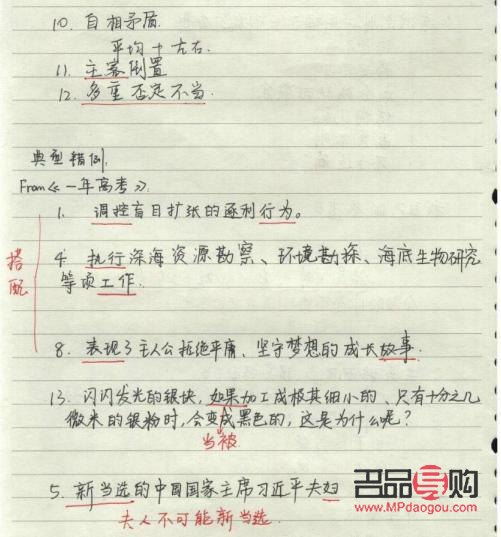 10. 自相矛盾
平均+左右.
11. 主客倒置
12. 多重否定不当.
典型错例.
From《一年高考》.
1. 调控盲目扩张的逐利行为。
搭配
4. 执行深海资源勘察、环境勘探、海底生物研究
等项工作.
8. 表现了主人公拒绝平庸、坚守梦想的成长故事.
13. 闪闪发光的银块,如果加工成极其细小的、只有十分之几
微米的银粉时,会变成黑色的,这是为什么呢?
当被
5. 新当选的中国国家主席习近平夫妇
夫人不可能新当选.
名品导购
www.MPdaogou.com